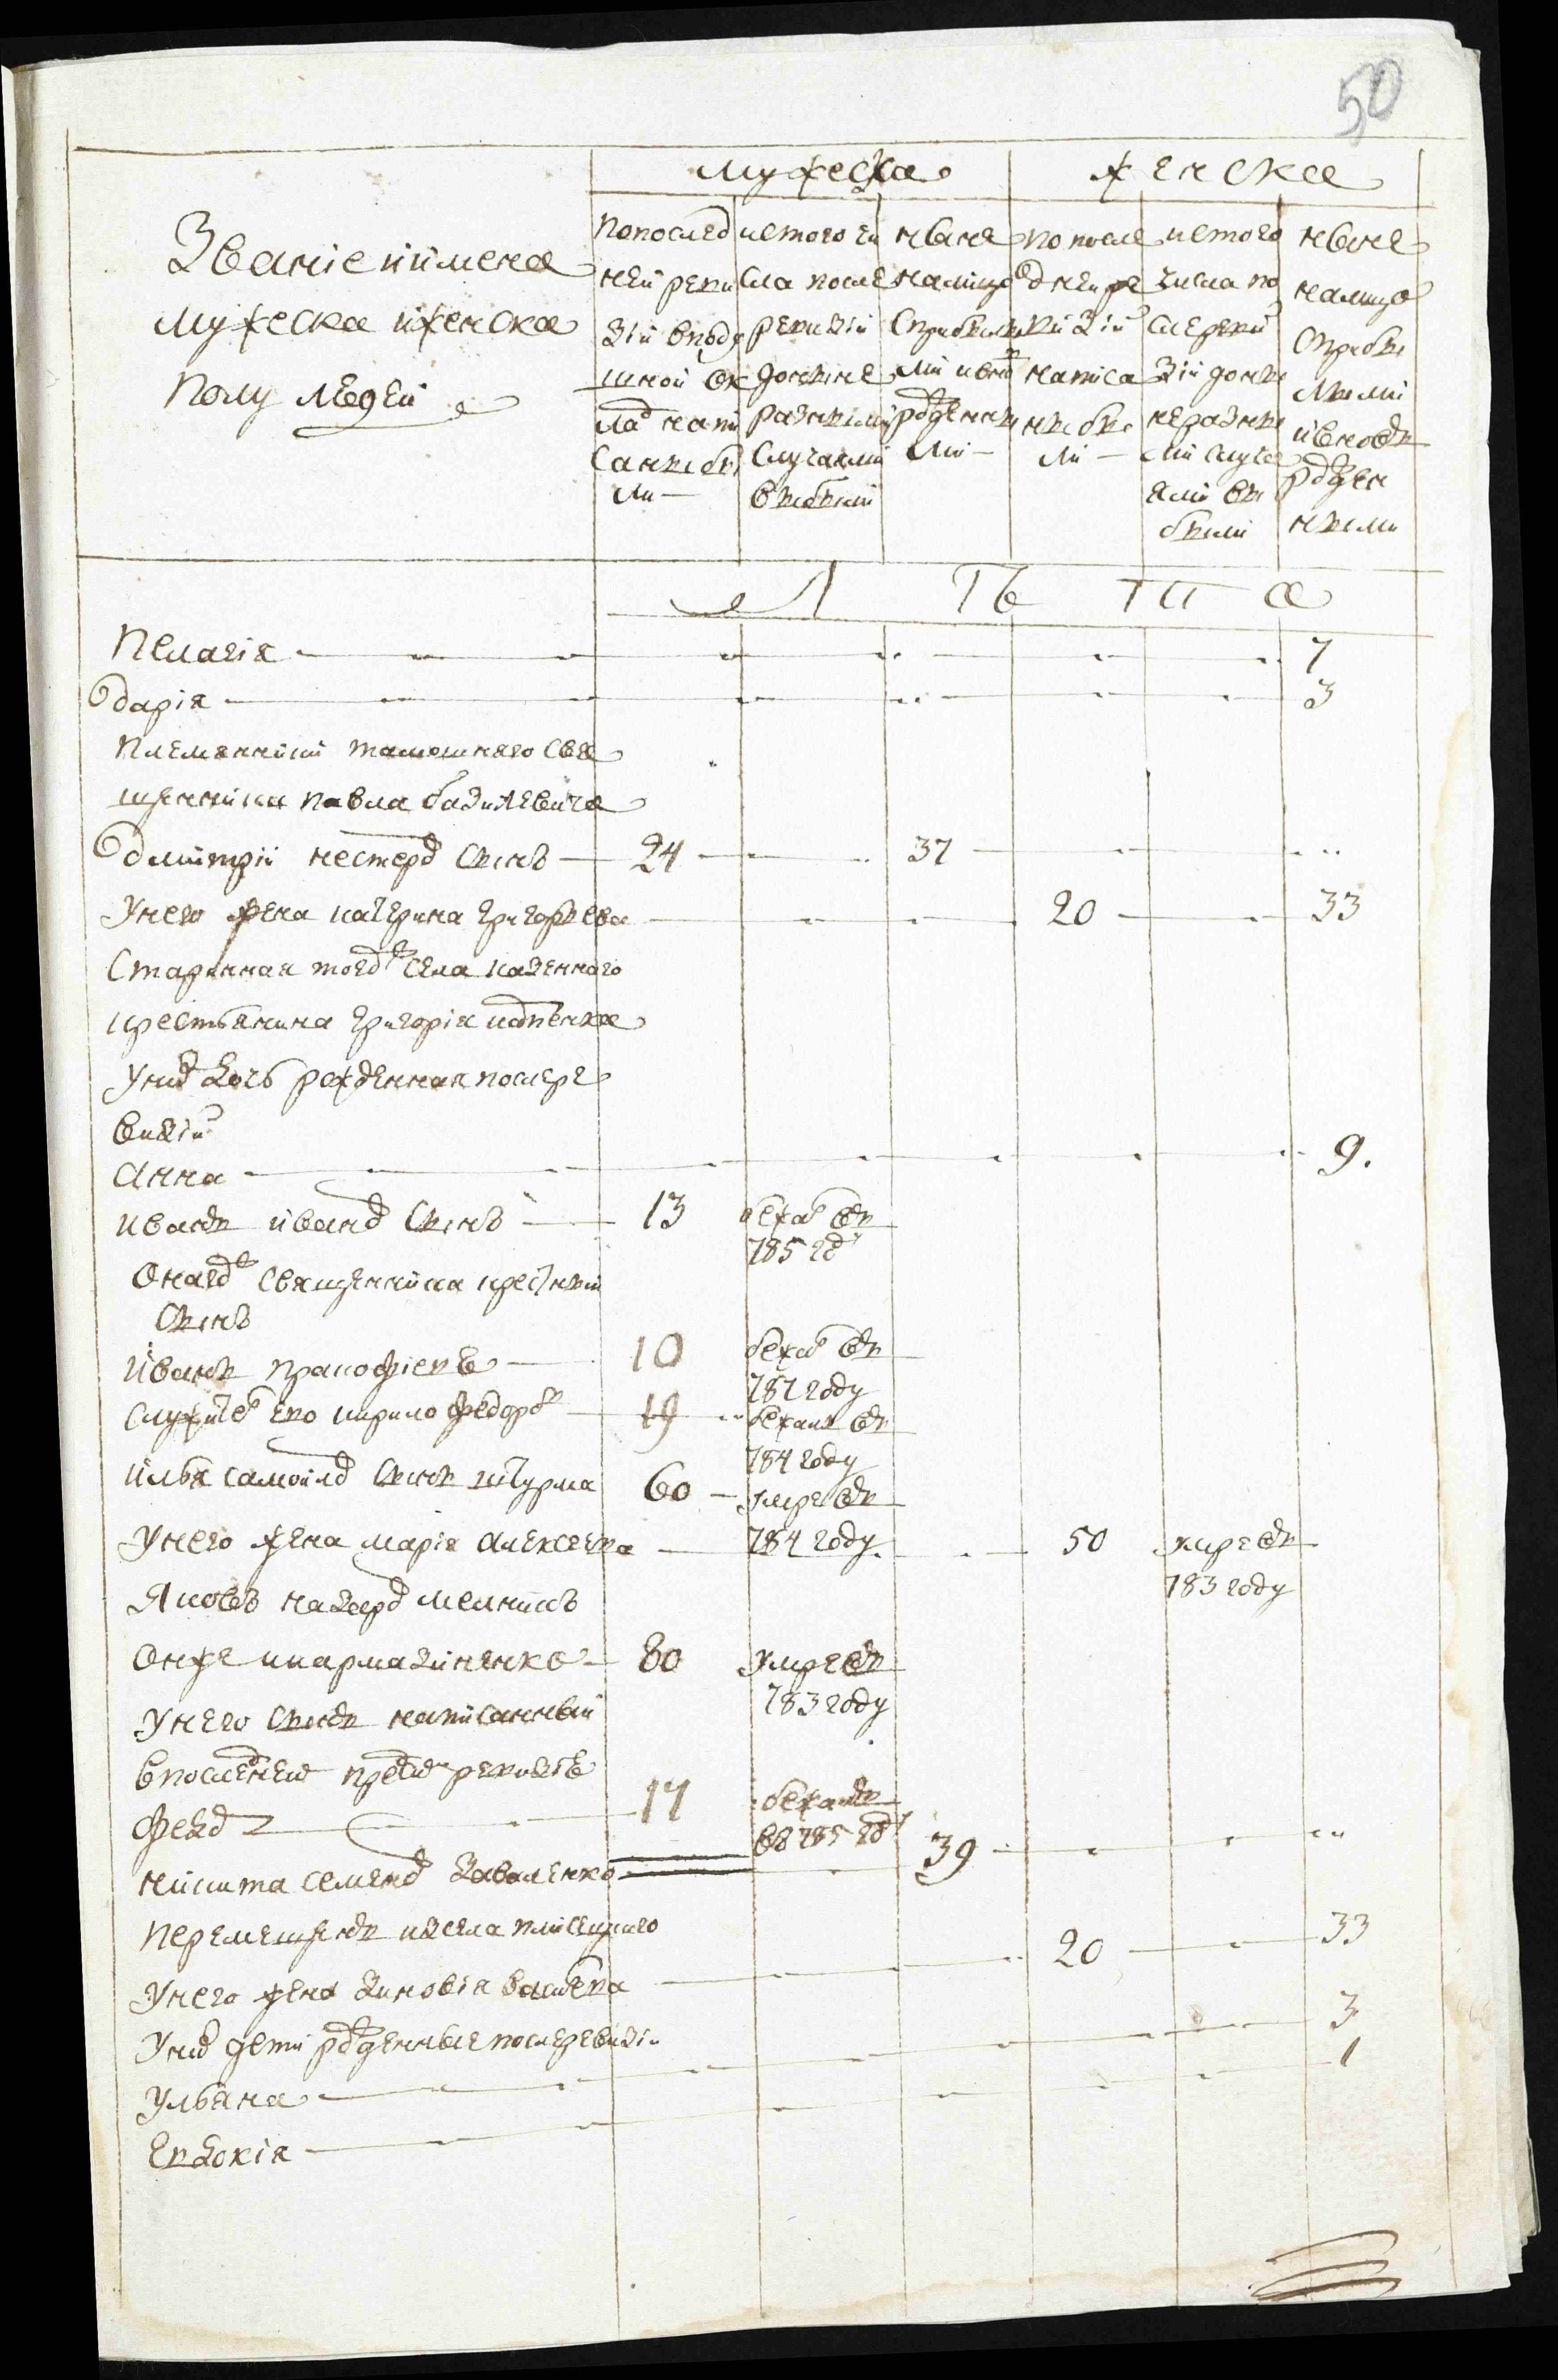 50
мужеска
женска
Званіе иимена
мужеска иженска
полу людей
попослед
ней реви
зіи вподу
шной ок
лад напи
саныбы
ли
истого чи
сла после
ревизіи
доныне
разными
случаями
выбыли
ныне
налицо
сприбылы
ми ивно
рожденны
ми
попосле
дней ре
визіи
написа
ныбы
ли
истого
числа по
слереви
зіи доны
неразны
ми случа
ями вы
были
ныне
налицо
сприбы
лыми
ивновъ
рожден
ными
Л Ѣ т а
Пелагія 7
дарія 3
племянники тамошняго свя
щенника павла базилевича
дмитрій нестеров сынъ 24 37
Унего жена катерина григорьева 20 33
старинная тоеж села казенного
крестьянина григорія
Уних дочь рожденная послере
визіи
Анна 9.
иванъ иванов сынъ 13 бежал въ
785 год
Онагож священника крестный
сынъ
Иванъ пракофіевъ 10 бежал въ
787 году
служитель ево кирило федоров 19 бежалъ въ
784 году
илья самойлов сынъ штурма 60 умре въ
784 году
Унего жена марія алексеева 50 умре въ
783 году
Яковъ назаров мелникъ
Онже шкармазиненко 80 умре въ
783 году
Унего сынъ написанный
впоследней пред сим ревизіе
Федор 17 бежалъ
въ 785 год
никита семенов заваленко 39
перемещенъ изсела плиский
Унего жена зиновія васильева 20 33
Уних дети рожденные послеревизіи
Ульяна 3
Евдокія 1